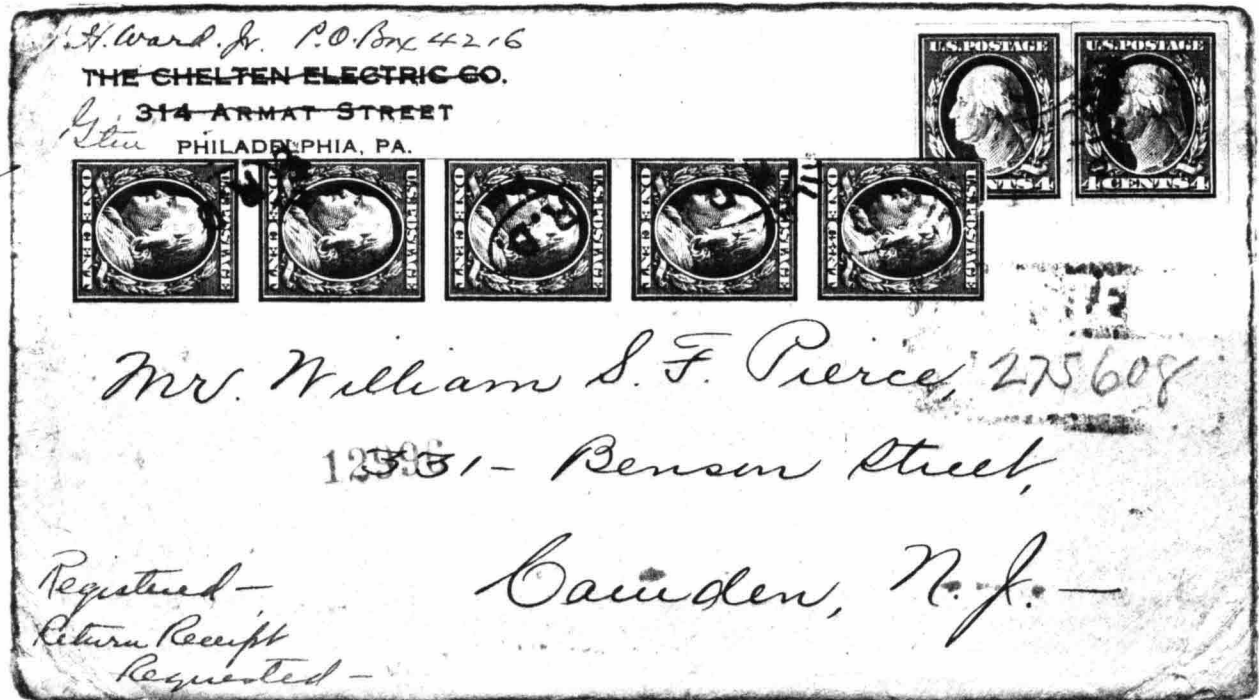 H. Ward. Jr. P.O. Box 4216
THE CHELTEN ELECTRIC CO.
314 ARMAT STREET
PHILADELPHIA, PA.
U.S.POSTAGE U.S.POSTAGE
CENTS 4 4 CENTS 4
ONE CENT U.S.POSTAGE ONE CENT U.S.POSTAGE ONE CENT U.S.POSTAGE ONE CENT U.S.POSTAGE ONE CENT U.S.POSTAGE
Mr. William S. F. Pierce, 275608
331- Benson Street,
Camden, N. J. —
Registered —
Return Receipt
Requested —